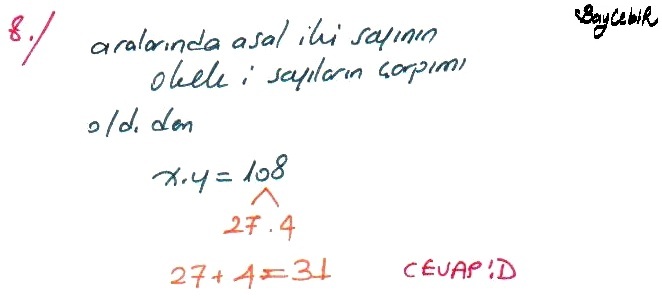 BayCebir
8./ aralarında asal iki sayının
okek i sayıların çarpımı
old. den
x.y = 108
27 . 4
27 + 4 = 31
CEVAP: D